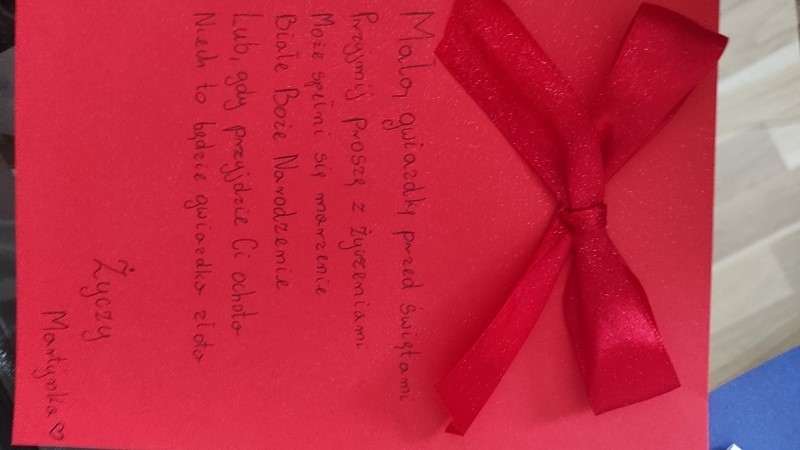 Małą gwiazdkę przed świętami
Przyjmij proszę z życzeniami
Może spełni się marzenie
Białe Boże Narodzenie
Lub, gdy przyjdzie Ci ochota
Niech to będzie gwiazdka złota
Życzy
Martynka ♡